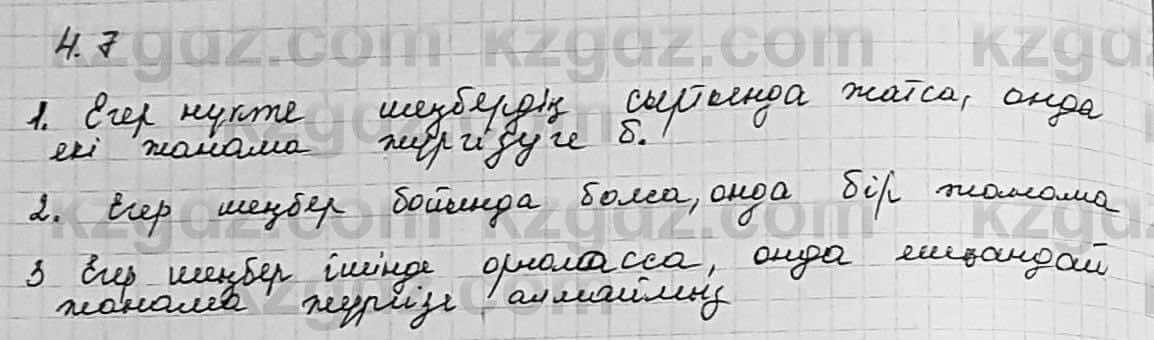 4.7
1. Егер нүкте шеңбердің сыртында жатса, онда
екі жанама жүргізуге б.
2. Егер шеңбер бойында болса, онда бір жанама
3 Егер шеңбер ішінде орналасса, онда ешқандай
жанама жүргізе алмаймыз
kzgdz.com kzgdz.com kzgdz.com